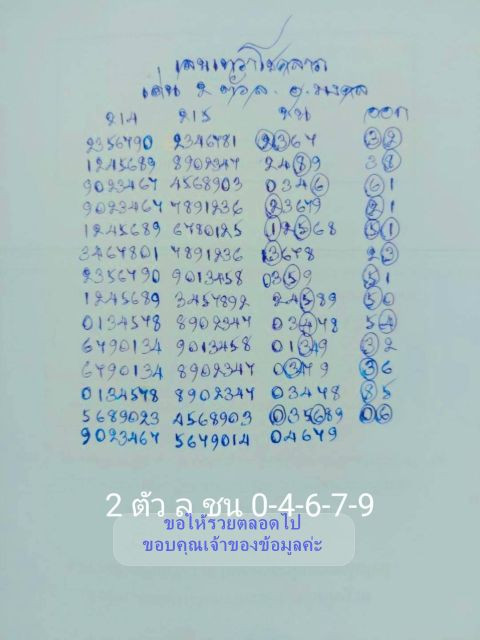 เลขเทวาโชคลาภ
เด่น 2 ตัว ล. อ.มงคล
214 215 ชน ออก
2356790 2346781 2367 32
1245689 8902347 2489 38
9023467 4568903 0346 61
9023467 7891236 23679 21
1245689 6780125 12568 51
3467801 7891236 3678 23
2356790 9013458 0359 51
1245689 3457892 24589 50
0134578 8902347 03478 54
6790134 9013458 01349 32
6790134 8902347 0379 36
0134578 8902347 03478 85
5689023 4568903 035689 06
9023467 5679014 04679
2 ตัว ล ชน 0-4-6-7-9
ขอให้รวยตลอดไป
ขอบคุณเจ้าของข้อมูลค่ะ